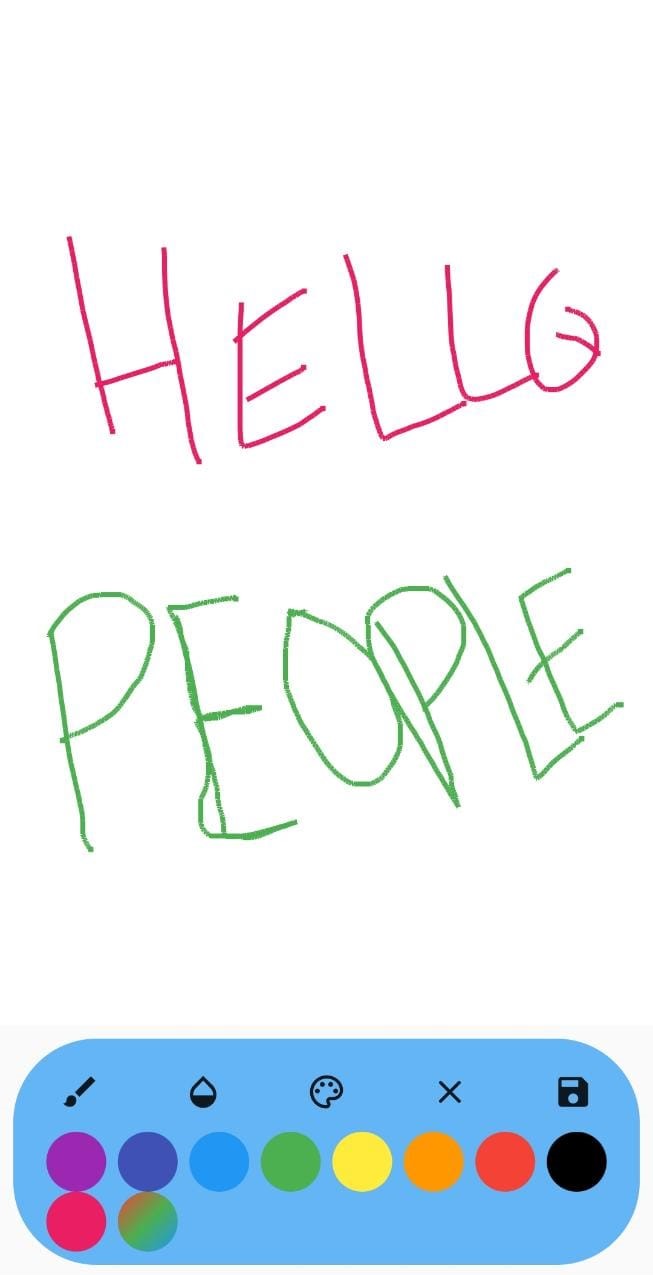 HELLO
PEOPLE